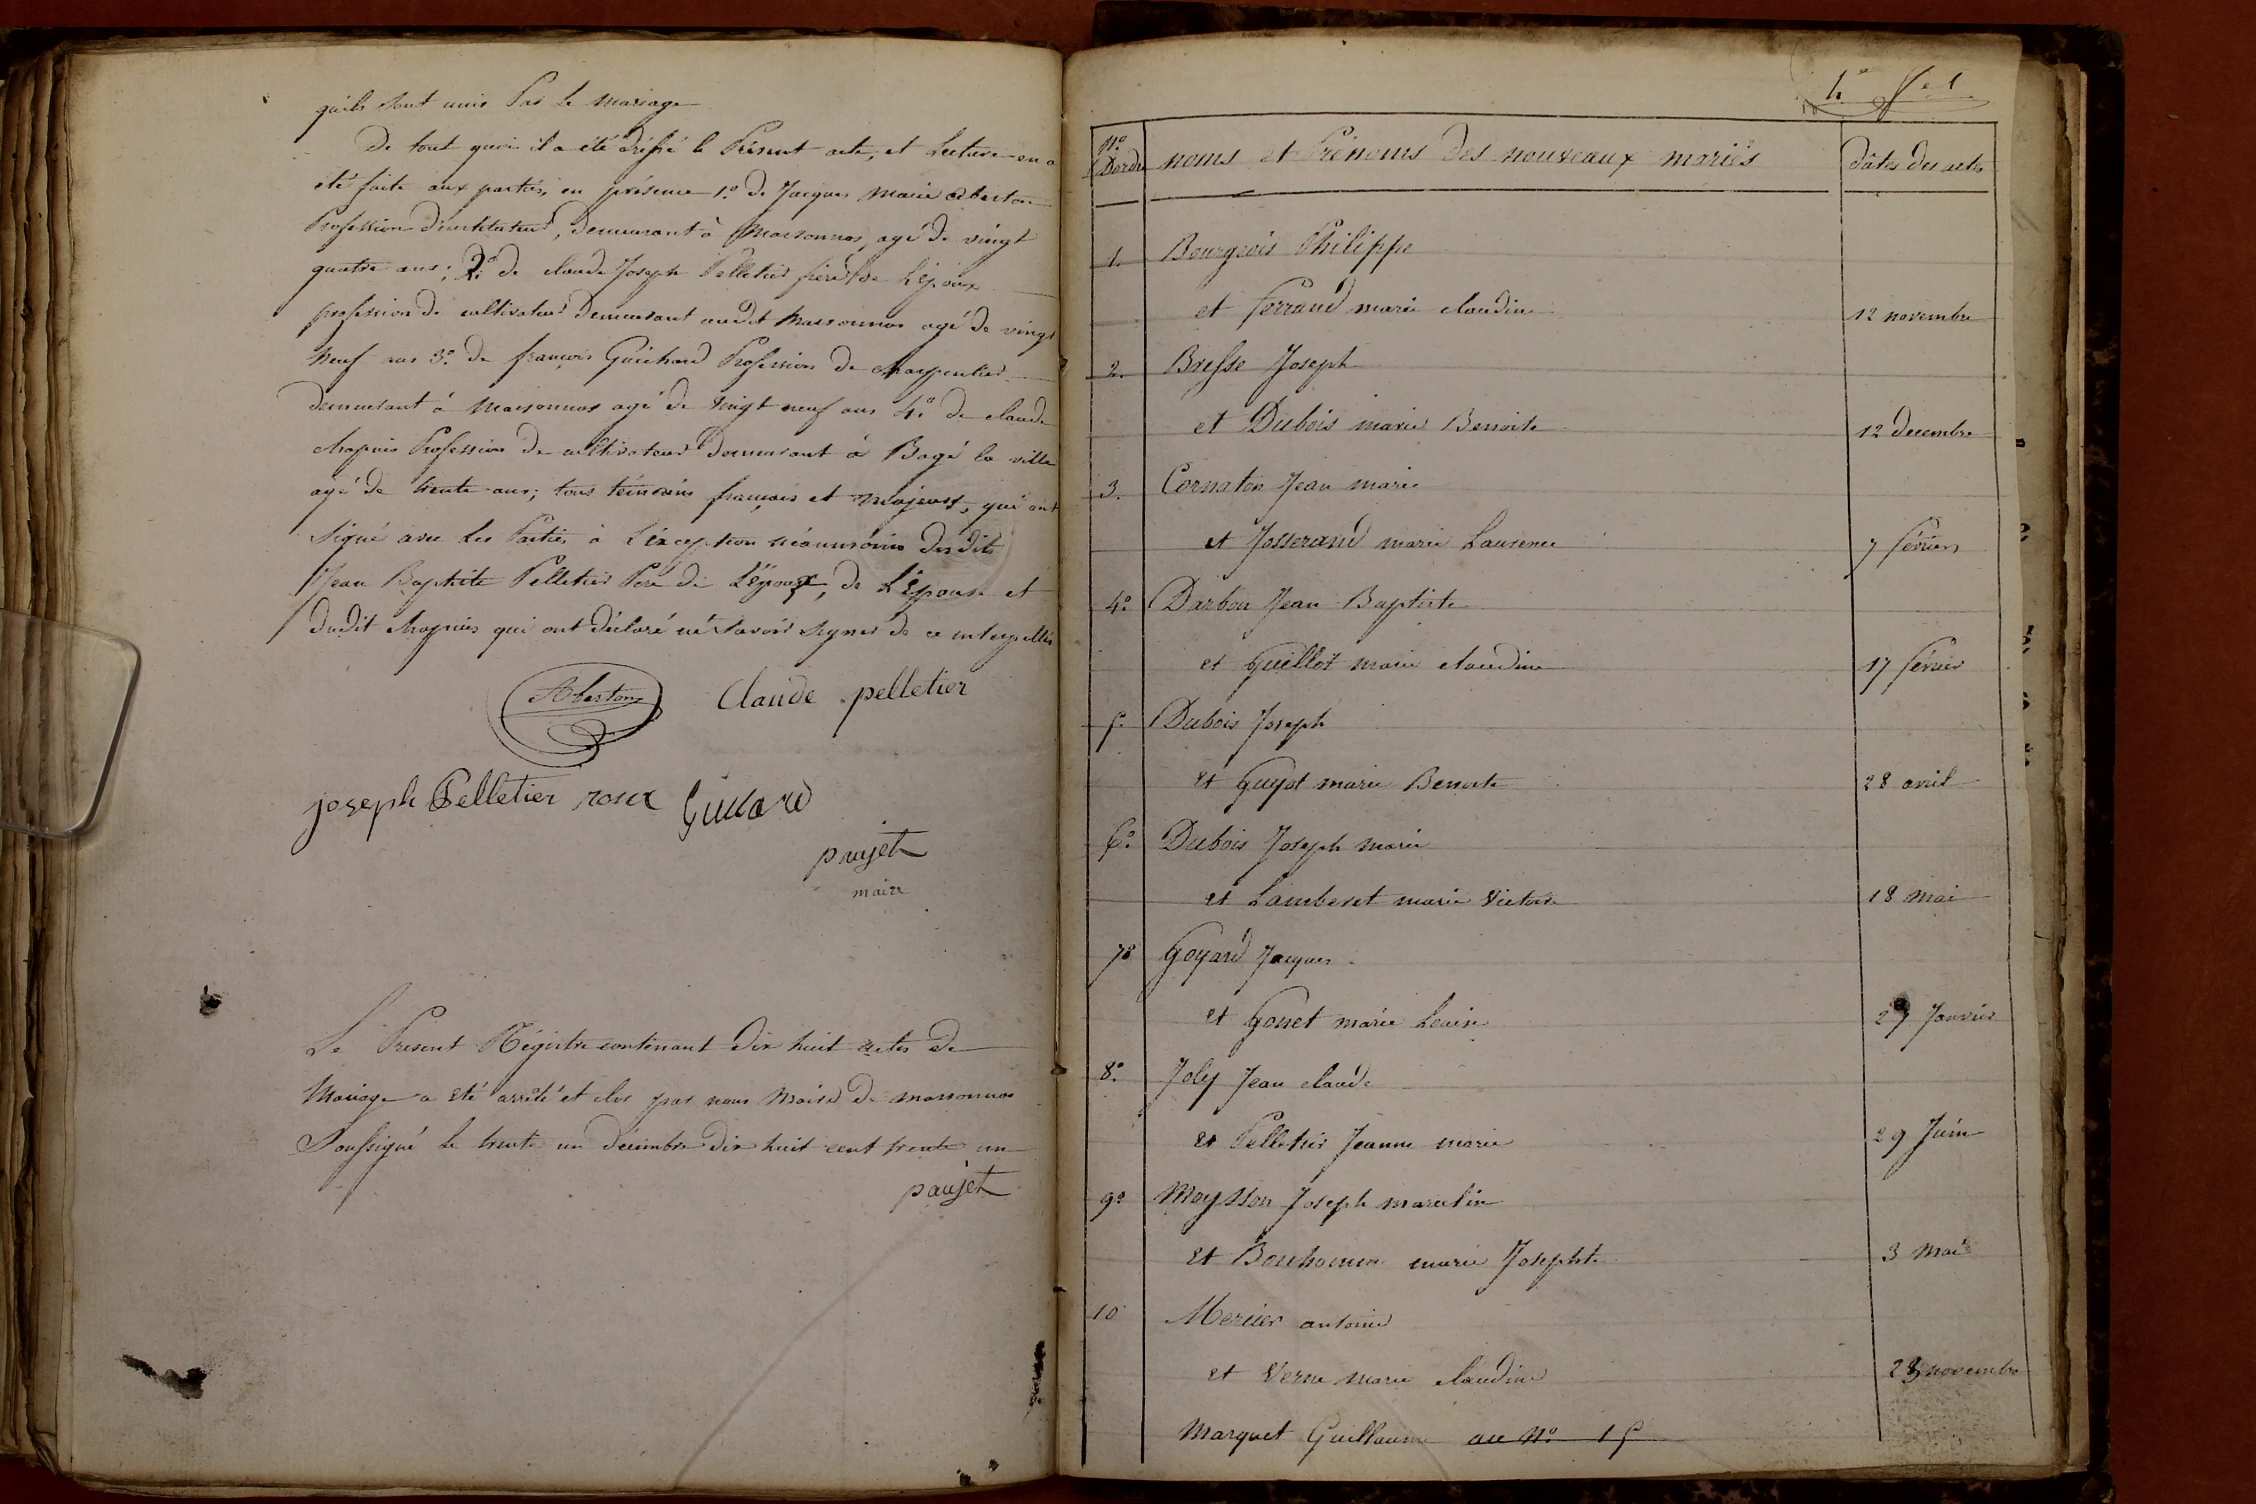 qu'ils sont unis Par le mariage
De tout quoi il a été dréssé le Présent acte, et Lecture en a
été faite aux parties, en présence 1.° de Jacques Marie Aberton
Profession d'instituteur, demeurant à Marsonnas, agé de vingt
quatre ans; 2.° de claude Joseph Pelletier frère de L'époux
profession de cultivateur demeurant audit Marsonnas agé de vingt
neuf ans 3.° de françois Guichard Profession de charpentier
demeurant à Marsonnas agé de vingt neuf ans 4.° de claude
chapuis Profession de cultivateur demeurant à Bagé la ville
agé de trente ans; tous témoins français et majeurs, qui ont
signé avec les Parties à L'exception néanmoins desdits
Jean Baptiste Pelletier Père de L'époux, de L'épouse et
dudit chapuis qui ont déclaré ne savoir signer de ce interpellés
Aberton
Claude pelletier
joseph Pelletier roux
Guicard
paujet
maire
Le Present Régistre contenant dix huit actes de
Mariage a été arrêté et clos par nous Maire de marsonnas
Soussigné le trente un décembre dix huit cent trente un
paujet
N.° Dordre noms et Prénoms des nouveaux mariés dâtes des actes
1. Bourgeois Philippe
et ferrand marie claudine 12 novembre
2. Bresse Joseph
et Dubois marie Benoite 12 decembre
3. Cornaton Jean marie
et Josserand marie Laurence 7 février
4.° Darbon Jean Baptiste
et Guillot marie claudine 17 février
5. Dubois Joseph
et Guyot marie Benoite 28 avril
6.° Dubois Joseph marie
et Lamberet marie Victoire 18 mai
7.° Goyard Jacques
et Gonet marie Louise 27 Janvier
8.° Joly Jean claude
et Pelletier Jeanne marie 29 Juin
9.° Moysson Joseph marcelin
et Bonhomme marie Josephte 3 mai
10 Mercier antoine
et Verne marie claudine novembre
Marguet Guillaume au N.° 15